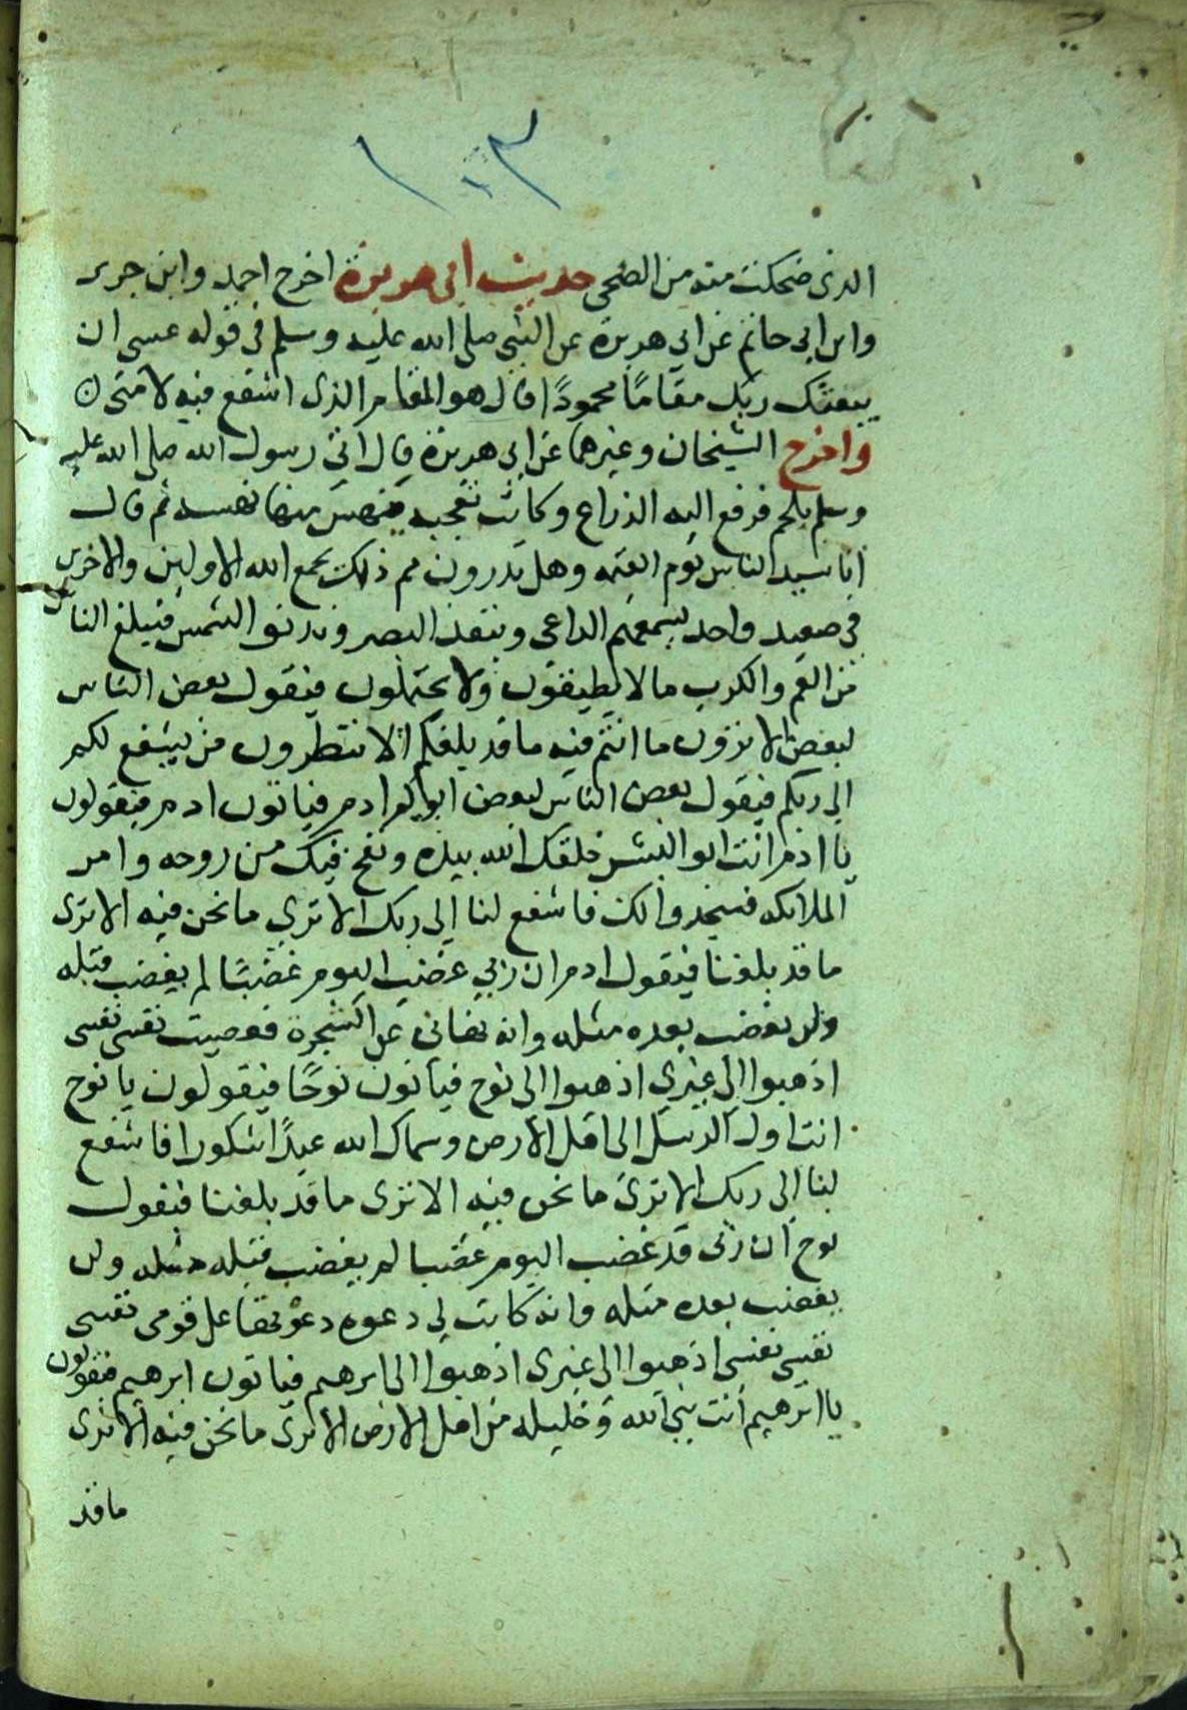 ١٠٣
الذى ضحكت منه من الضحى حديث ابى هريرة اخرج احمد وابن جرير
وابن ابى حاتم عن ابى هريرة عن النبى صلى الله عليه وسلم فى قوله عسى ان
يبعثك ربك مقامًا محمودًا قال هو المقام الذى اشفع فيه لامتى
واخرج الشيخان وغيرهما عن ابى هريرة قال اتى رسول الله صلى الله عليه
وسلم بلحم فرفع اليه الذراع وكانت تعجبه فنهس منها نهسة ثم قال
انا سيد الناس يوم القيمه وهل تدرون مم ذلك يجمع الله الاولين والاخرين
فى صعيد واحد يسمعهم الداعى وينفذ البصر وتدنو الشمس فيبلغ الناس
من الغم والكرب ما لا يطيقون ولا يحتملون فيقول بعض الناس
لبعض الا ترون ما انتم فيه ما قد بلغكم الا تنتظرون من يشفع لكم
الى ربكم فيقول بعض الناس لبعض ابوكم ادم فياتون ادم فيقولون
يا ادم انت ابو البشر خلقك الله بيده ونفخ فيك من روحه وامر
الملائكه فسجدوا لك فاشفع لنا الى ربك الا ترى ما نحن فيه الا ترى
ما قد بلغنا فيقول ادم ان ربى غضب اليوم غضبًا لم يغضب قبله
ولن يغضب بعده مثله وانه نهانى عن الشجرة فعصيت نفسى نفسى
اذهبوا الى غيرى اذهبوا الى نوح فيأتون نوحًا فيقولون يا نوح
انت اول الرسل الى اهل الارض وسماك الله عبدًا شكورا فاشفع
لنا الى ربك الا ترى ما نحن فيه الا ترى ما قد بلغنا فيقول
نوح ان ربى قد غضب اليوم غضبا لم يغضب قبله مثله ولن
يغضب بعده مثله وانه كانت لى دعوة دعوتها على قومى نفسى
نفسى نفسى اذهبوا الى غيرى اذهبوا الى ابرهيم فياتون ابرهيم فيقولون
يا ابرهيم انت نبى الله وخليله من اهل الارض الا ترى ما نحن فيه الا ترى
ما قد